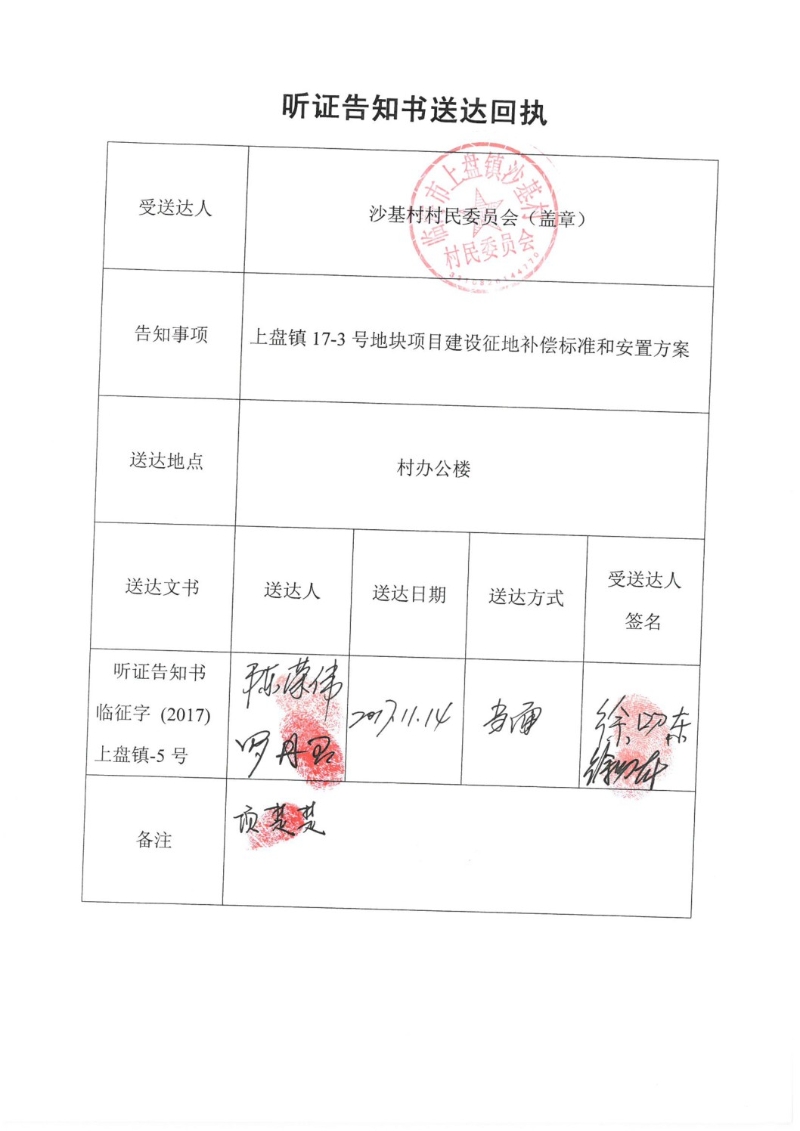 听证告知书送达回执
受送达人
沙基村村民委员会（盖章）
临 市上盘镇沙基村
村民委员会
告知事项
上盘镇 17-3 号地块项目建设征地补偿标准和安置方案
送达地点
村办公楼
送达文书
送达人
送达日期
送达方式
受送达人
签名
听证告知书
临征字 (2017)
上盘镇-5 号
陈荣伟
罗丹
2017.11.14
当面
徐 东
备注
项楚楚